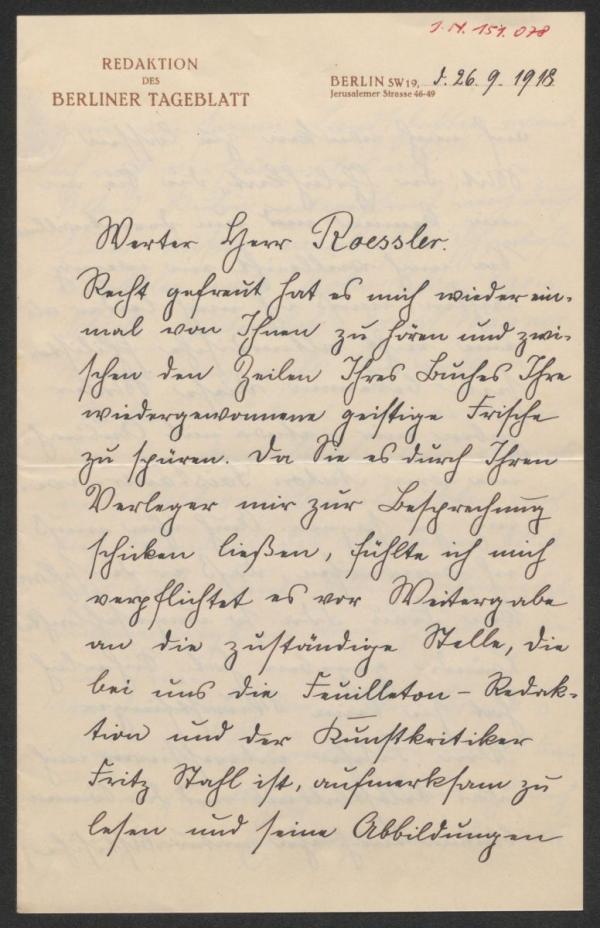 J. N. 151.078
REDAKTION
DES
BERLINER TAGEBLATT
BERLIN SW 19, d. 26. 9. 1918
Jerusalemer Strasse 46-49
Werter Herr Roessler.
Recht gefreut hat es mich wieder ein-
mal von Ihnen zu hören und zwi-
schen den Zeilen Ihres Buches Ihre
wiedergewonnene geistige Frische
zu spüren. Da Sie es durch Ihren
Verleger mir zur Besprechung
schicken ließen, fühlte ich mich
verpflichtet es vor Weitergabe
an die zuständige Stelle, die
bei uns die Feuilleton – Redak-
tion und der Kunstkritiker
Fritz Stahl ist, aufmerksam zu
lesen und seine Abbildungen